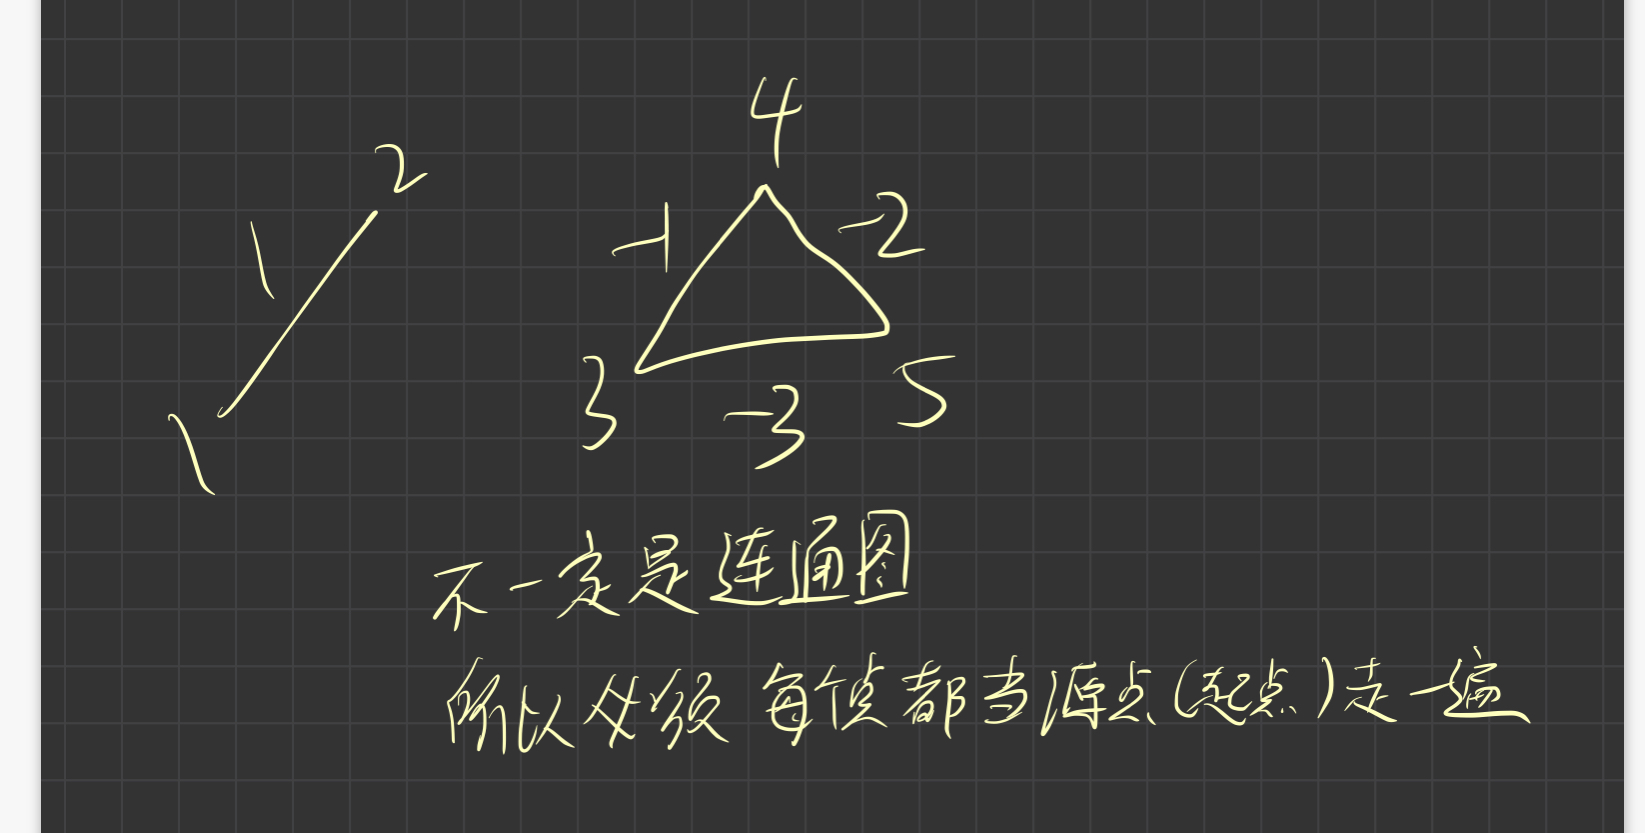 4
2
-1
-2
1
3
-3
5
1
不一定是连通图
所以必须 每个点都当源点(起点)走一遍